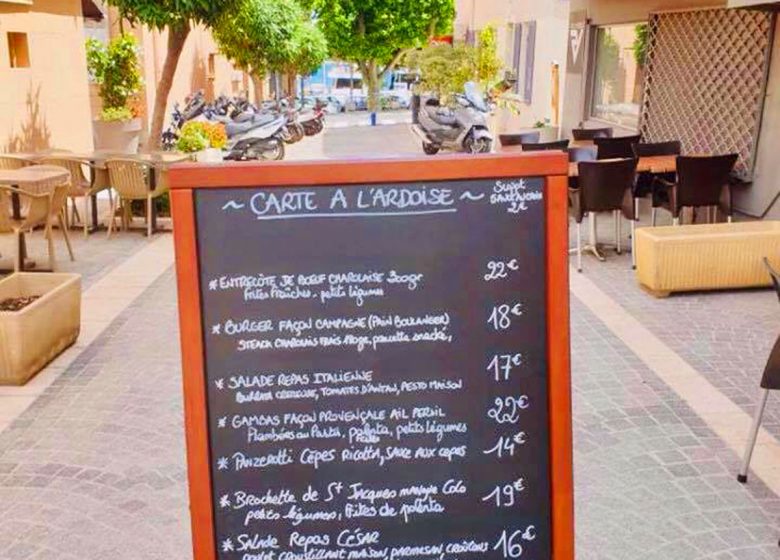 ~ CARTE A L'ARDOISE ~
Suppt
2€
* ENTRECÔTE DE BŒUF CHAROLAISE 300gr 22€
frites fraîches - petits légumes
* BURGER FAÇON CAMPAGNE (PAIN BOULANGER) 18€
STEACK CHAROLAIS FRAIS 180gr, pancetta snacké,
* SALADE REPAS ITALIENNE 17€
BURRATA CREMEUSE, TOMATES D'ANTAN, PESTO MAISON
* GAMBAS FAÇON PROVENÇALE AIL PERSIL 22€
Flambées au Pastis, polenta, petits légumes
frites
* PANZEROTTI CÈPES RICOTTA, SAUCE AUX CEPES 14€
* Brochette de St Jacques 19€
petits légumes, frites de polenta
* SALADE REPAS CÉSAR 16€
poulet croustillant maison, PARMESAN, CROÛTONS